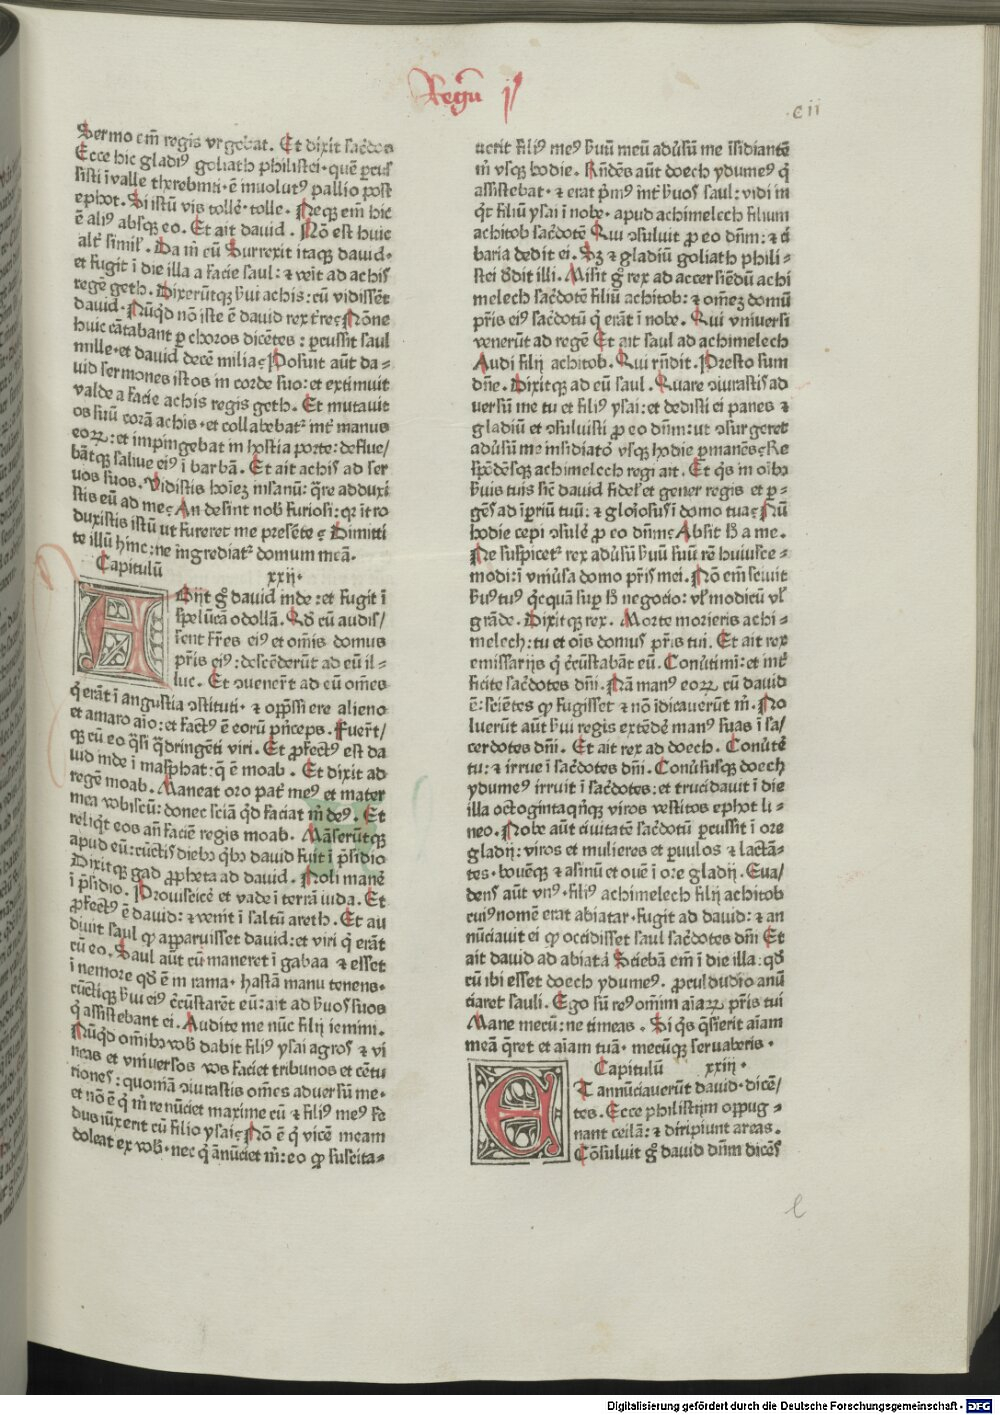 Regū j
cii
Sermo em̄ regis vrgebat. Et dixit sac̓dos
Ecce hic gladiꝰ goliath philistei · quē pcus
sisti ī valle therebinti · ē inuolutꝰ pallio post
ephot. Si istū vis tolle᷑ · tolle. Neqꝫ em̄ hic
ē aliꝰ absqꝫ eo. Et ait david. Nō est huic
alt̓ simil̓. Da m̄ eū Surrexit itaqꝫ dauid·
et fugit ī die illa a facie saul: ⁊ veīt ad achis
regē geth. Dixerūtqꝫ ſ̓ui achis: cū vidissēt
dauid. Nūqd̓ nō iste ē dauid rex tr̄e? Nōne
huic cātabant p choros dicētes: pcussit saul
mille· et dauid decē milia? Posuit aūt da⸗
uid sermones istos in corde suo: et extimuit
valde a facie achis regis geth. Et mutauit
os suū corā achis· et collabebat᷑ int̓ manus
eoꝝ: et impingebat in hostia porte: deflue/
bātqꝫ saliue eiꝰ ī barbā. Et ait achis ad ser
uos suos. Vidistis hoīez insanū: qre adduxi
stis eū ad me? An desint nob̓ furiosi: qr ītro
duxistis istū ut fureret me presēte? Dimitti
te illū hinc: ne īngrediat᷑ domum meā.
Capitulū xxij·
ABijt g̓ dauid inde: et fugit ī
spelūcā odollā. Qd̓ cū audis/
sent fr̄es eiꝰ et om̄is domus
pr̄is eiꝰ: descēderūt ad eū il⸗
luc. Et ɔuener̄t ad eū om̄es
q̓ erāt ī angustia ɔstituti· ⁊ opp̄ssi ere alieno
et amaro aīo: et factꝰ ē eorū p̓nceps. Fuer̄t/
qꝫ cū eo q̓si q̓dringēti viri. Et pfectꝰ est da
uid inde ī masphat: q̄ ē moab. Et dixit ad
regē moab. Maneat oro pat̓ meꝰ et mater
mea vobiscū: donec sciā qd̓ faciat m̄ deꝰ. Et
reliqt̓ eos añ faciē regis moab. Māserūtqꝫ
apud eū: cūctis diebꝫ qbꝫ dauid fuit ī p̄sidio
Dixitqꝫ gad ppheta ad dauid. Noli manē
ī p̄sidio. Prouiscicē et vade ī terrā iuda. Et
pfectꝰ ē dauid: ⁊ venit ī saltū areth. Et au
diuit saul qꝫ apparuisset dauid: et viri q̓ erāt
cū eo. Saul aūt cū maneret ī gabaa ⁊ esset
ī nemore qd̓ ē in rama· hastā manu tenens·
cūctiqꝫ ſ̓ui eiꝰ cɔ̄ustarēt eū: ait ad ſ̓uos suos
q̓ assistebant ei. Audite me nūc filij iemini.
Nūqd̓ om̄ibꝫ vob̓ dabit filiꝰ ysai agros ⁊ vi
neas et vniuersos vos faciet tribunos et cētu
riones: quoniā ɔiurastis om̄es aduersū me·
et nō ē q̓ m̄ renūciet maxime cū ⁊ filiꝰ meꝰ fe
dus iūxerit cū filio ysai? Nō ē q̓ vicē meam
doleat ex vob̓· nec q̓ anūciet m̄: eo qꝫ suscita⸗
uerit filiꝰ meꝰ ſ̓uū meū adūsū me īsidiantē
m̄ vsqꝫ hodie. Rn̄dēs aūt doech ydumeꝰ q̓
assistebat· ⁊ erat p̓mꝰ int̓ ſ̓uos saul: vidi in
qt̓ filiū ysai ī nobe· apud achimelech filium
achitob sac̓dotē Qui ɔsuluit p eo dn̄m: ⁊ ci
baria dedit ei. Sꝫ ⁊ gladiū goliath phili⸗
stei d̓dit illi. Misit g̓ rex ad accersiēdū achi
melech sac̓dotē filiū achitob: ⁊ om̄eꝫ domū
pr̄is eiꝰ sac̓dotū q̓ erāt ī nobe. Qui vniuersi
venerūt ad regē Et ait saul ad achimelech
Audi filij achitob. Qui rn̄dit. Presto sum
dn̄e. Dixitqꝫ ad eū saul. Quare ɔiurastis ad
uersū me tu et filiꝰ ysai: et dedisti ei panes ⁊
gladiū et ɔsuluisti p eo dn̄m: ut ɔsurgeret
adūsū me insidiatoꝛ vsqꝫ hodie pmanēs? Re
spōdēsqꝫ achimelech regi ait. Et q̓s in oībꝫ
ſ̓uis tuis sic̄ dauid fidel̓ et gener regis et p⸗
gēs ad īperiū tuū: ⁊ gloīosus ī domo tua? Nū
hodie cepi ɔsulē p eo dn̄m? Absit h̓ a me.
Ne suspicet᷑ rex adūsū ſ̓uū suū rē huiusce⸗
modi: ī vniūsa domo pr̄is mei. Nō em̄ sciuit
ſ̓uꝰ tuꝰ qcquā sup h̓ negocio: vl̓ modicū vl̓
grāde. Dixitqꝫ rex. Morte morieris achi⸗
melech: tu et oīs domus pr̄is tui. Et ait rex
emissarijs q̓ cɔ̄ustabāt eū. Conūtimi: et int̓
ficite sac̓dotes dn̄i. Nā manꝰ eoꝝ cū dauid
ē: sciētes qꝫ fugisset ⁊ nō īdicauerūt m̄. No
luerūt aūt ſ̓ui regis extēdē manꝰ suas ī sa/
cerdotes dn̄i. Et ait rex ad doech. Conūtē
tu: ⁊ irrue ī sac̓dotes dn̄i. Conūsusqꝫ doech
ydumeꝰ irruit ī sac̓dotes: et trucidauit ī die
illa octogintaqn̓qꝫ viros vestitos ephot li⸗
neo. Nobe aūt ciuitatē sac̓dotū pcussit ī ore
gladij: viros et mulieres et puulos ⁊ lactā⸗
tes· bouēqꝫ ⁊ asinū et ouē ī ore gladij. Eua/
dens aūt vnꝰ· filiꝰ achimelech filij achitob
cuiꝰ nomē erat abiatar· fugit ad dauid: ⁊ an
nūciauit ei qꝫ occidisset saul sac̓dotes dn̄i Et
ait dauid ad abiatā Sciebā em̄ ī die illa: qd̓
cū ibi esset doech ydumeꝰ. pculdubio anū
ciaret sauli. Ego sū reꝰ om̄im aīaꝝ pr̄is tui
Mane mecū: ne timeas. Si q̓s q̓sierit aīam
meā q̄ret et aīam tuā· mecūqꝫ seruaberis.
Capitulū xxiij·
ET annūciauerūt dauid· dicē/
tes. Ecce philistijm oppug⸗
nant ceilā: ⁊ diripiunt areas.
Cōsuluit g̓ dauid dn̄m dicēs
e
Digitalisierung gefördert durch die Deutsche Forschungsgemeinschaft · DFG